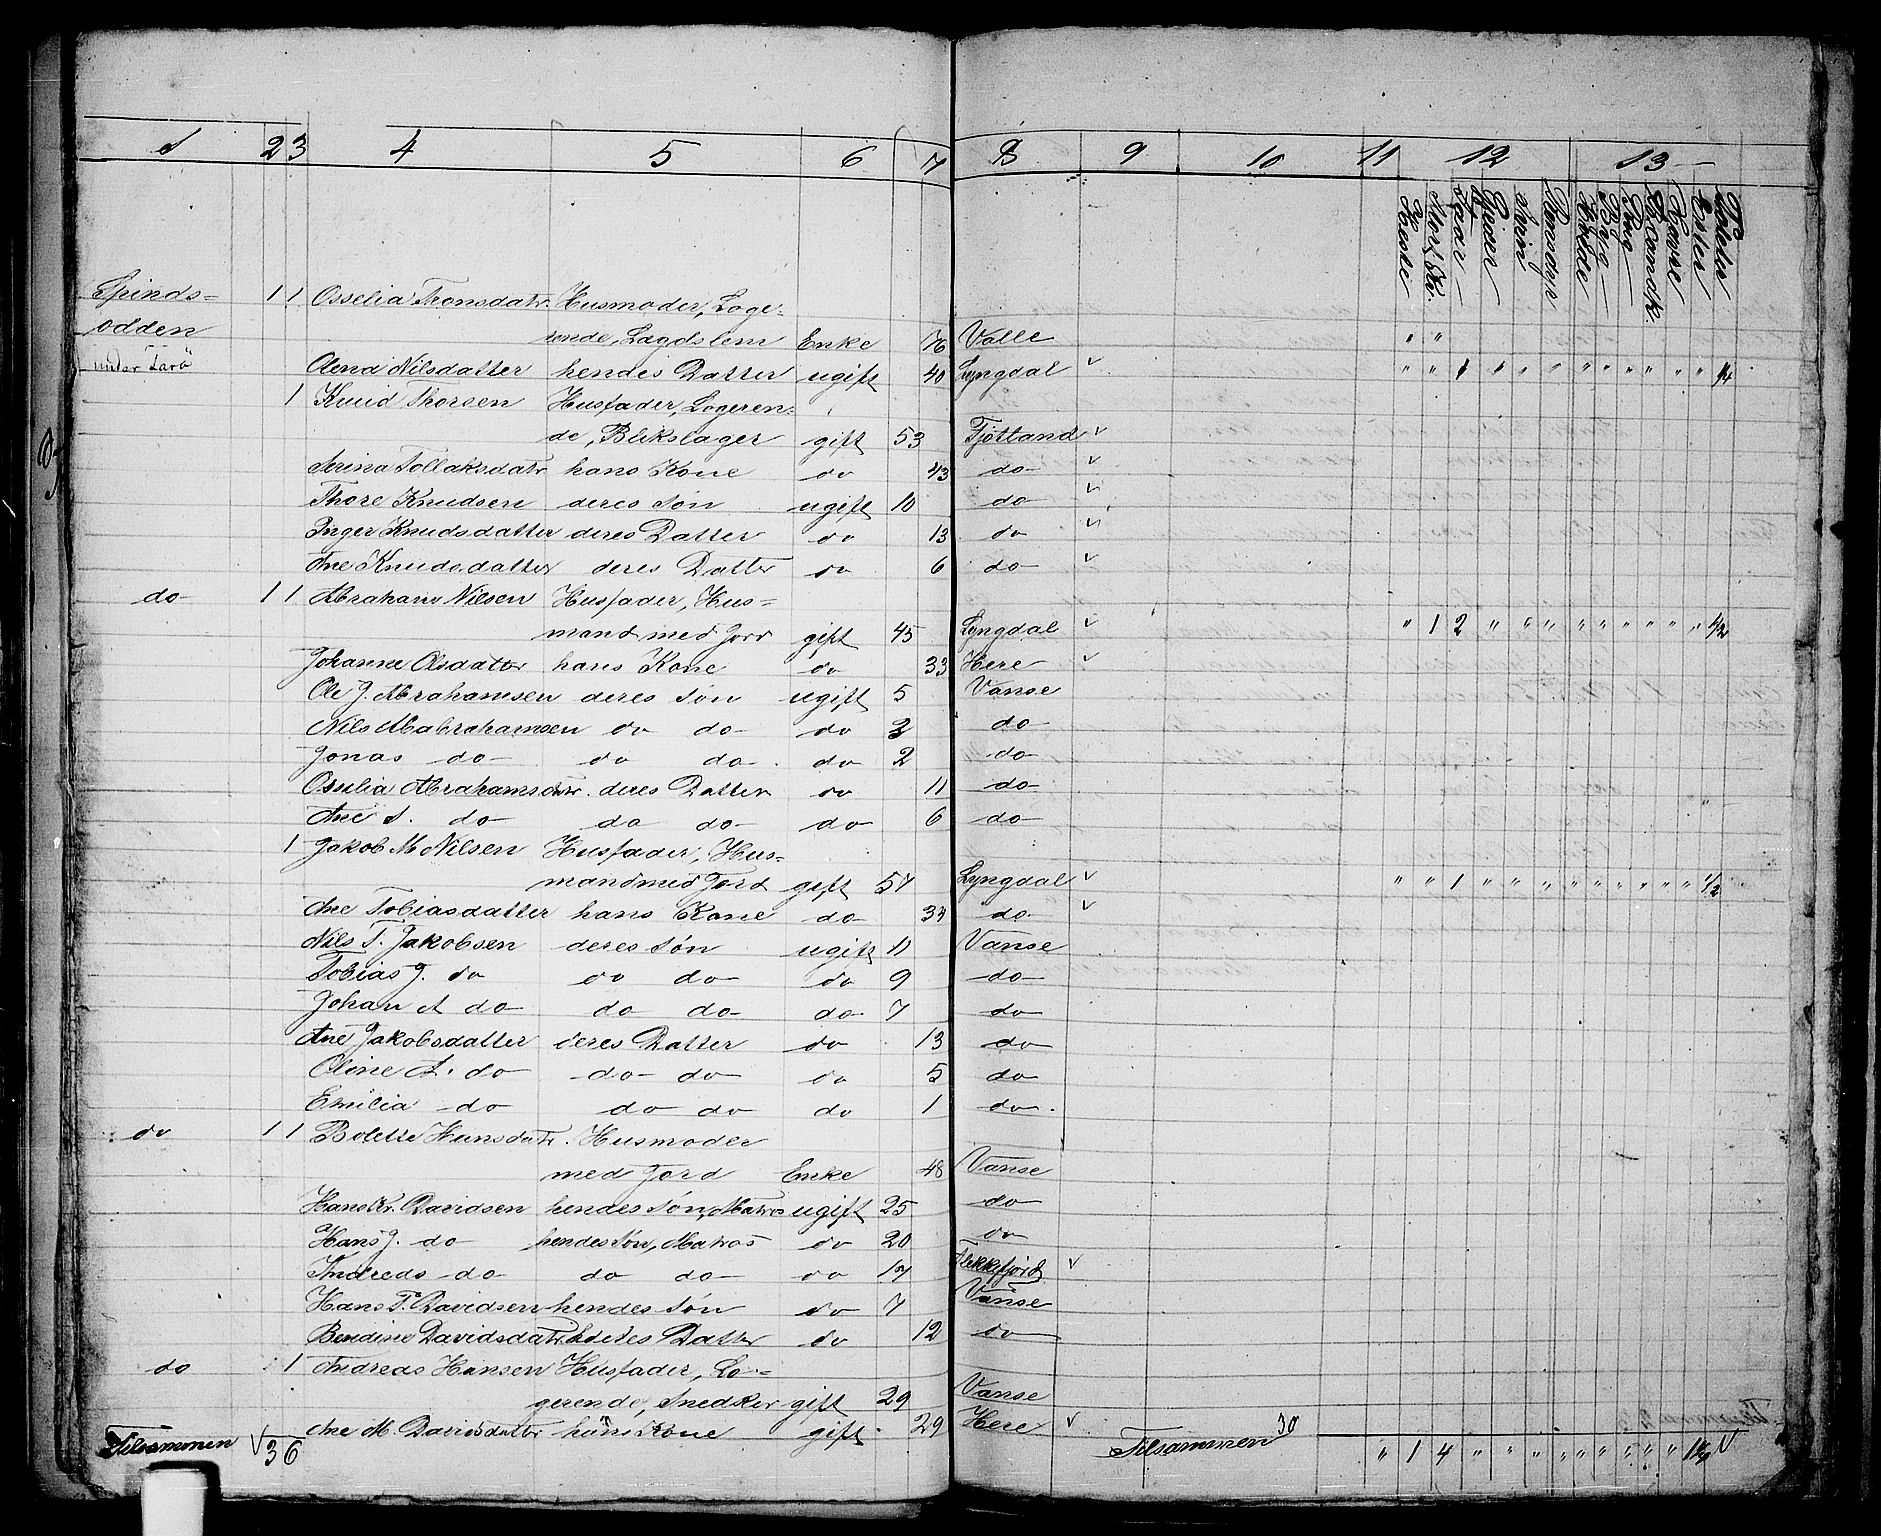 1 2 3 4 5 6 7 8 9 10 11 12 13
Heste Stort Kv. Faar Geder Sviin Rensdyr Hvede Byg Rug Blandk. Havre Erter Poteter
Spinds= 1 1 Osselia Thonsdatr. Husmoder, Loge-
odden rende, Lægdslem Enke 76 Valle " "
under Farö Olena Nilsdatter hendes Datter ugift 40 Lyngdal v " " 1 1 " " " " " " " " 1/4
1 Knud Thorsen Husfader, Logeren-
de, Blikslager gift 53 Fjotland v
Serina Tollaksdatr hans Kone do 43 do v
Thore Knudsen deres Søn ugift 10 do v
Inger Knudsdatter deres Datter do 13 do v
Ane Knudsdatter deres Datter do 6 do v
do 1 1 Abraham Nilsen Husfader, Hus=
mand med Jord gift 45 Lyngdal v " 1 2 " " " " " " " " " 1/2
Johanne Olsdatter hans Kone do 33 Here v
Ole J. Abrahamsen deres Søn ugift 5 Vanse
Nils Mabrahamsen do do do 3 do
Jonas do do do do 2 do
Osselia Abrahamsdatr. deres Datter do 11 do
Ane S. do do do do 6 do
1 Jakob M Nilsen Husfader, Hus=
mand med Jord gift 57 Lyngdal v " " 1 " " " " " " " " " 1/2
Ane Tobiasdatter hans Kone do 34 do v
Nils T. Jakobsen deres Søn ugift 11 Vanse
Tobias J. do do do do 9 do
Johan A do do do do 7 do
Ane Jakobsdatter deres Datter do 13 do
Oline A. do do do do 5 do
Emilia do do do do 1 do.
do 1 1 Bolette Hansdatr. Husmoder
med Jord Enke 48 Vanse
Hans Kr. Davidsen hendes Søn, Matros ugift 25 do
Hans J. do hendes Søn, Matros do 20 do
Andreas do do do do 17 Flekkefjord v
Hans T. Davidsen hendes Søn do 7 Vanse
Bendine Davidsdatr. hendes Datter do 12 do
do 1 Andreas Hansen Husfader, Lo=
gerende, Snedker gift 29 Vanse
Ane M. Davidsdatter hans Kone gift 29 Here v
Tilsammen v 36 Tilsammen 30 " 1 4 " " " " " " " " " 1 1/4 v